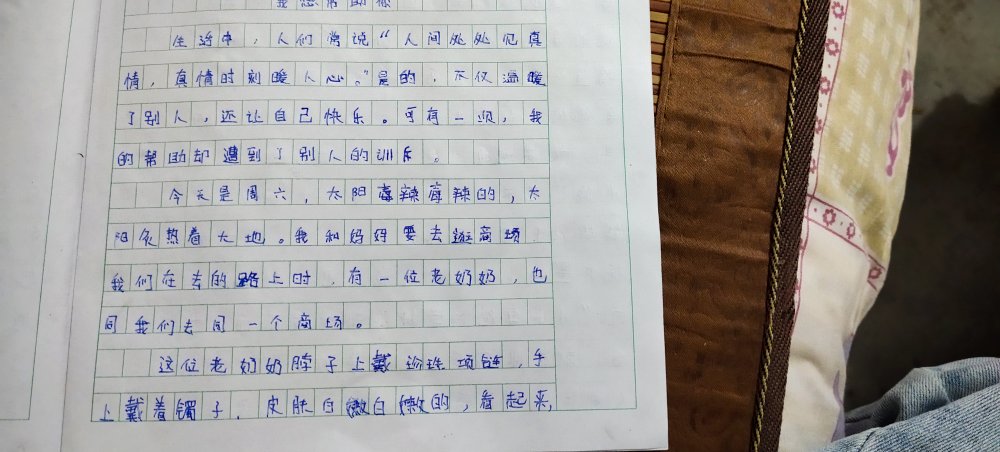 我想帮助你
生活中，人们常说“人间处处见真
情，真情时刻暖人心。”是的，不仅温暖
了别人，还让自己快乐。可有一次，我
的帮助却遭到了别人的训斥。
今天是周六，太阳毒辣毒辣的，太
阳炙热着大地。我和妈妈要去逛商场
我们在去的路上时，有一位老奶奶，也
同我们去同一个商场。
这位老奶奶脖子上戴珍珠项链，手
上戴着镯子，皮肤白嫩白嫩的，看起来，